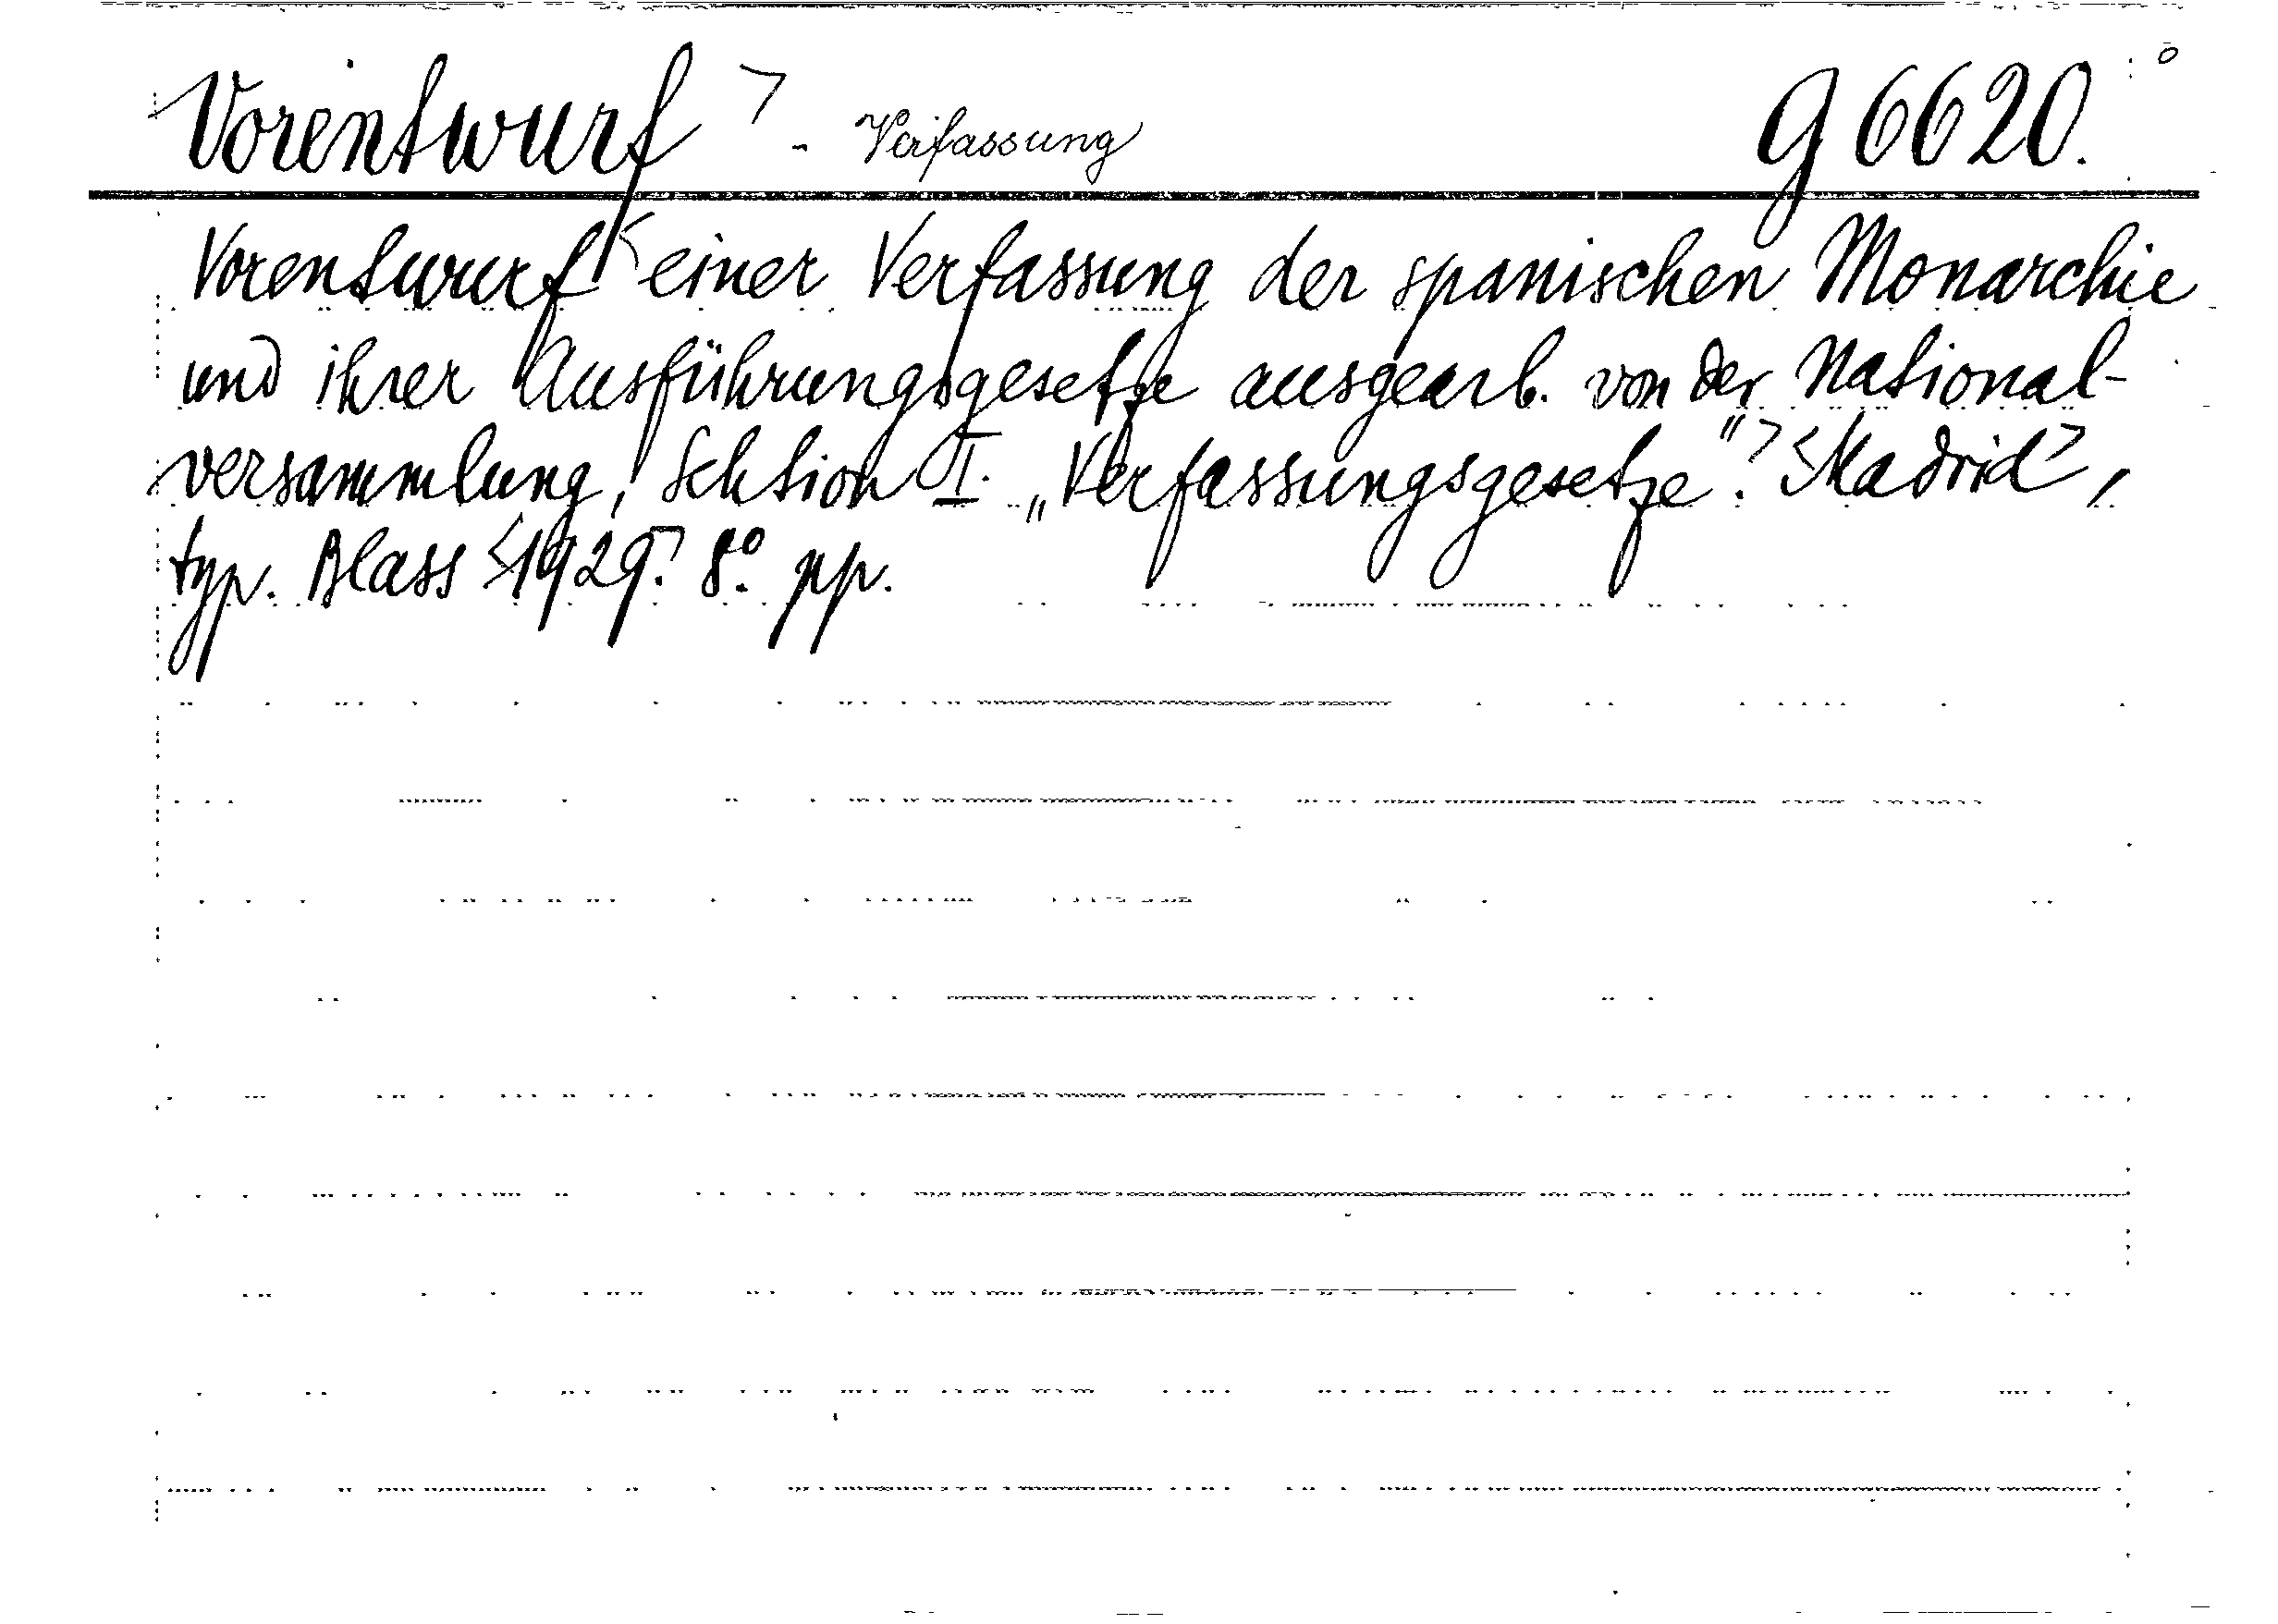 Vorentwurf> - Verfassung G 6620.
Vorentwurf <einer Verfassung der spanischen Monarchie
und ihrer Ausführungsgesetze ausgearb. von der National-
versammlung, Sektion I. „Verfassungsgesetze".> <Madrid>,
typ. Blass <1929.> 8.° pp.